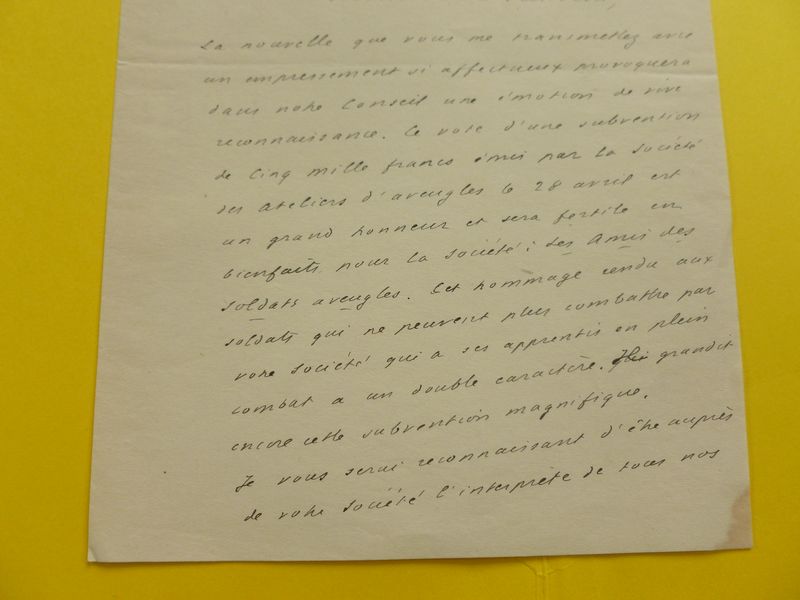 La nouvelle que vous me transmettez avec
un empressement si affectueux provoquera
dans notre Conseil une émotion de vive
reconnaissance. Ce vote d'une subvention
de Cinq mille francs émis par la Société
des Ateliers d'aveugles le 28 avril est
un grand honneur et sera fertile en
bienfaits pour la Société : Les Amis des
Soldats aveugles. Cet hommage rendu aux
soldats qui ne peuvent plus combattre par
votre société qui a ses apprentis en plein
combat a un double caractère. grandit
encore cette subvention magnifique.
Je vous serai reconnaissant d'être auprès
de votre Société l'interprète de tous nos